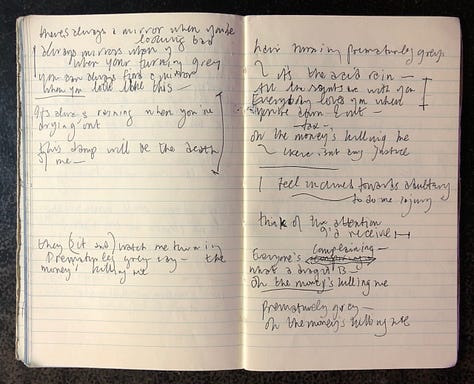 there's always a mirror when you're
looking bad
always mirrors when y
when your turning grey
you can always find a mirror
when you look like this —
It's always raining when you're
drying out
this damp will be the death
of me —
they (sit and) watch me turning
Prematurely grey say — the
money's killing me
hair turning prematurely grey
it's the acid rain —
All the saints are with you
Everybody loves you when
you're down & out —
tax —
oh the money's killing me
there isnt any Justice
I feel inclined towards
to do me injury
think of the attention
I'd receive
complaining —
Everyone's
what a drag it is
oh the money's killing me
Prematurely grey —
oh the money's killing me